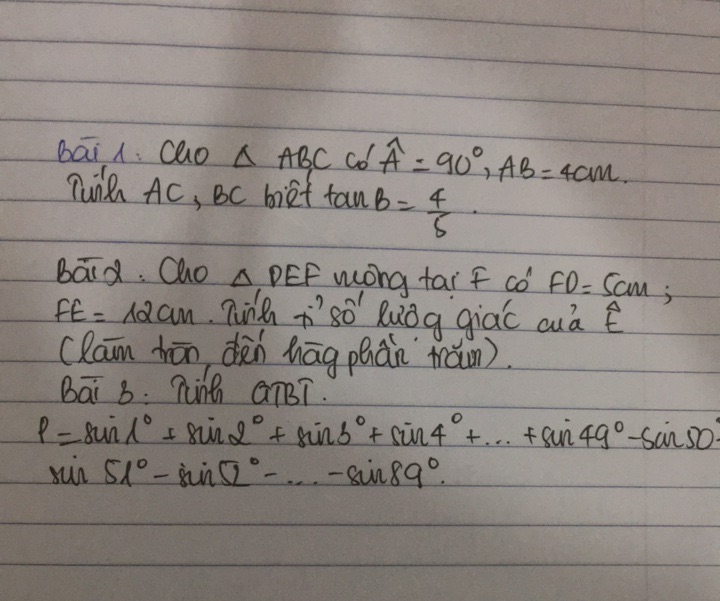 Bài 1: Cho △ ABC có Â = 90°, AB = 4cm.
Tính AC, BC biết tanB = 4/5.
Bài 2: Cho △ DEF vuông tại F có FD = 5cm;
FE = 12cm. Tính tỉ số lượng giác của Ê
(làm tròn đến hàng phần trăm).
Bài 3: Tính GTBT.
P = sin1° + sin2° + sin3° + sin4° + ... + sin49° - sin50° -
sin 51° - sin52° - ... - sin89°.